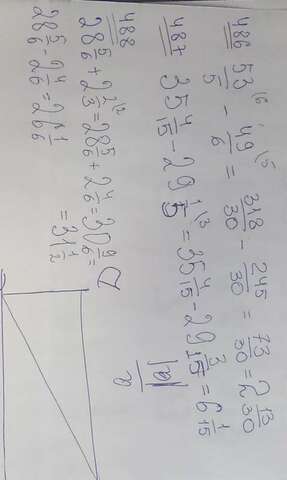 486 53/5 ^6 - 49/6 ^5 = 318/30 - 245/30 = 73/30 = 2 13/30
487 35 4/15 - 29 1/5 ^3 = 35 4/15 - 29 3/15 = 6 1/15
488
28 5/6 + 2 2/3 ^2 = 28 5/6 + 2 4/6 = 30 9/6 =
= 31 1/2
28 5/6 - 2 4/6 = 26 1/6
D